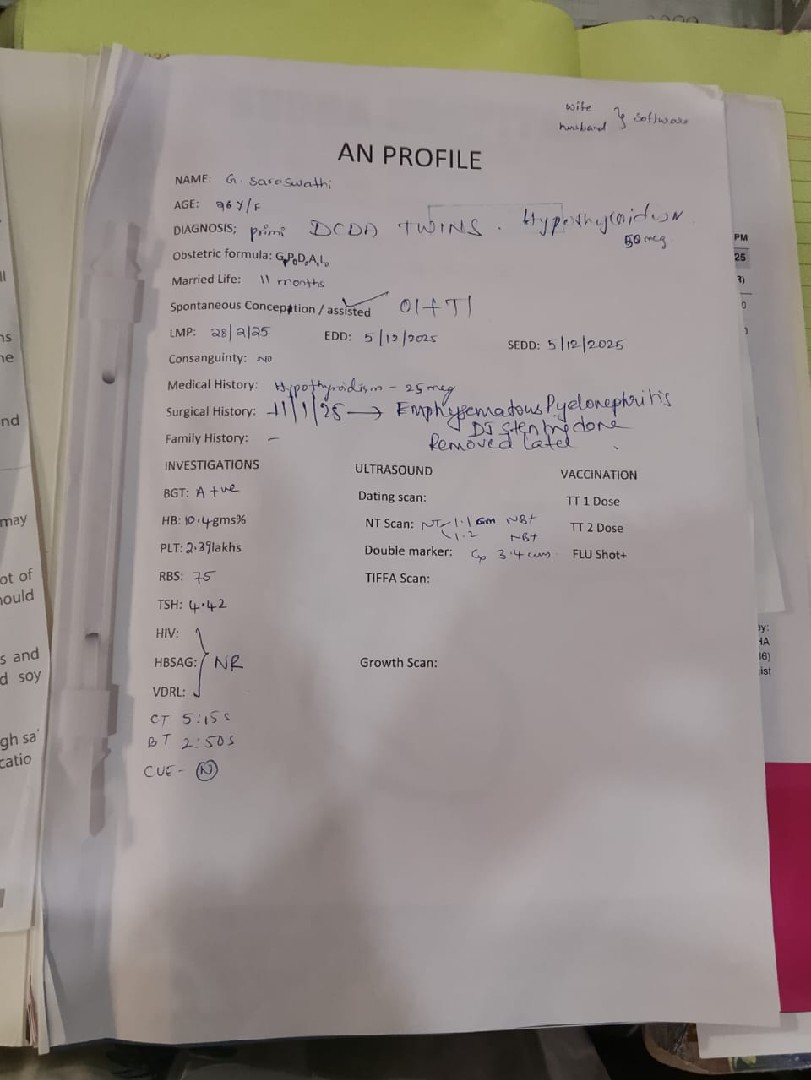 wife
husband } software
AN PROFILE
NAME: G. Saraswathi
AGE: 26 Y/F
DIAGNOSIS; primi DCDA TWINS . Hypothyroidism
50 mcg
Obstetric formula: G2P0D0A1L0
Married Life: 11 months
Spontaneous Conception / assisted ✓ OI+TI
LMP: 28/2/25 EDD: 5/12/2025 SEDD: 5/12/2025
Consanguinty: NO
Medical History: Hypothyroidism - 25 mcg
Surgical History: 11/1/25 → Emphysematous Pyelonephritis
DJ stenting done
Removed Later
Family History: -
INVESTIGATIONS ULTRASOUND VACCINATION
BGT: A +ve Dating scan: TT 1 Dose
HB: 10.4gms% NT Scan: NT 1.1 mm NB+ TT 2 Dose
1.2 NB+
PLT: 2.39lakhs Double marker: 3.4 cms FLU Shot+
RBS: 75 TIFFA Scan:
TSH: 4.42
HIV:
HBSAG: NR Growth Scan:
VDRL:
CT 5:15s
BT 2:50s
CUE - N
PM
25
ns
ne
nd
may
ot of
hould
s and
d soy
gh sa
catio
by:
HA
36)
ist